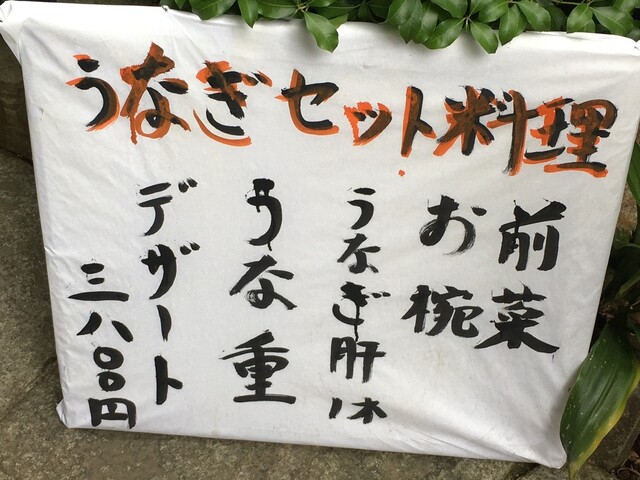 うなぎセット料理
前菜
お椀
うなぎ肝
うな重
デザート
三八〇〇円